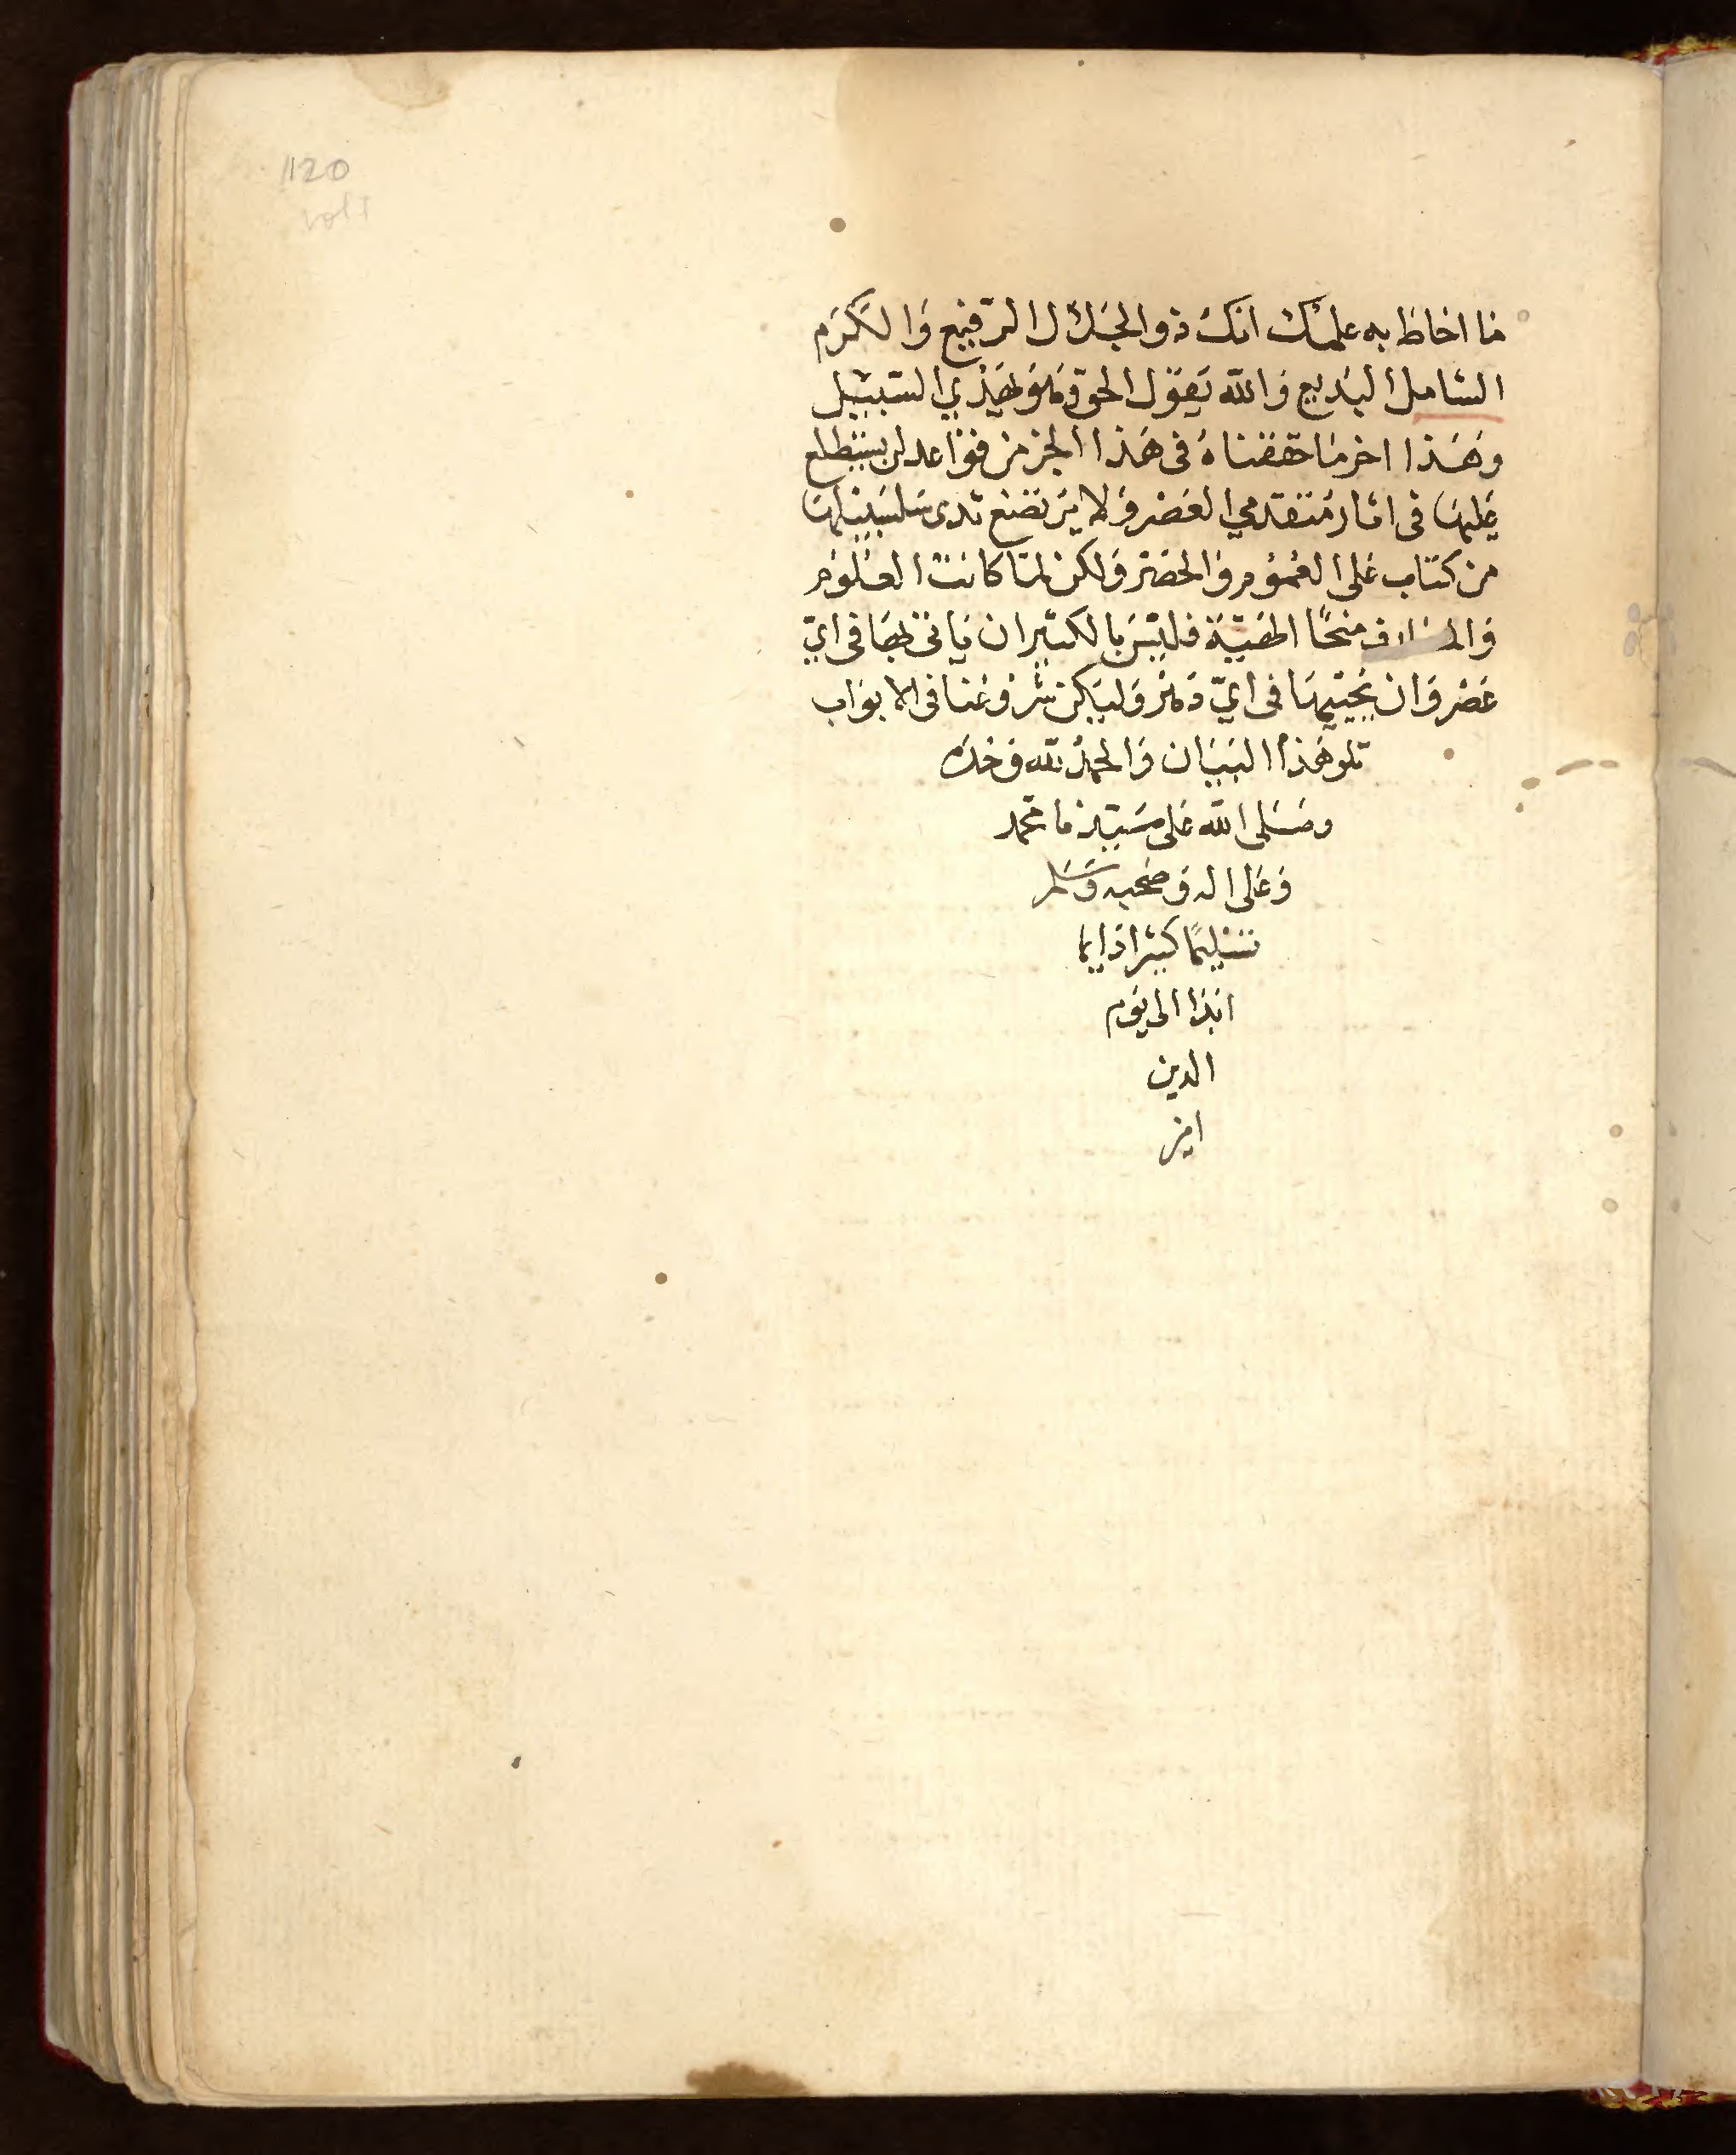 120
vol 1
ما احاط به علمك انك ذو الجلال الرفيع والكرم
الشامل البديع والله يقول الحق وهو يهدي السبيل
وهذا اخر ما حققناه في هذا الجز من قواعد لن يستطلع
عليها في اثار متقدمي العصر ولا يرتضع ثدى سلسبيلها
من كتاب على العموم والحصر ولكن لما كانت العلوم
منحًا الهية فليس بالكثير ان ياتى بها في ايّ
عصر وان يحييها في ايّ دهر وليكن شروعنا في الابواب
تلو هذا البيان والحمد لله وحده
وصلى الله على سيدنا محمد
وعلى اله وصحبه وسلم
تسليمًا كثيرا دايما
ابدا الى يوم
الدين
امين